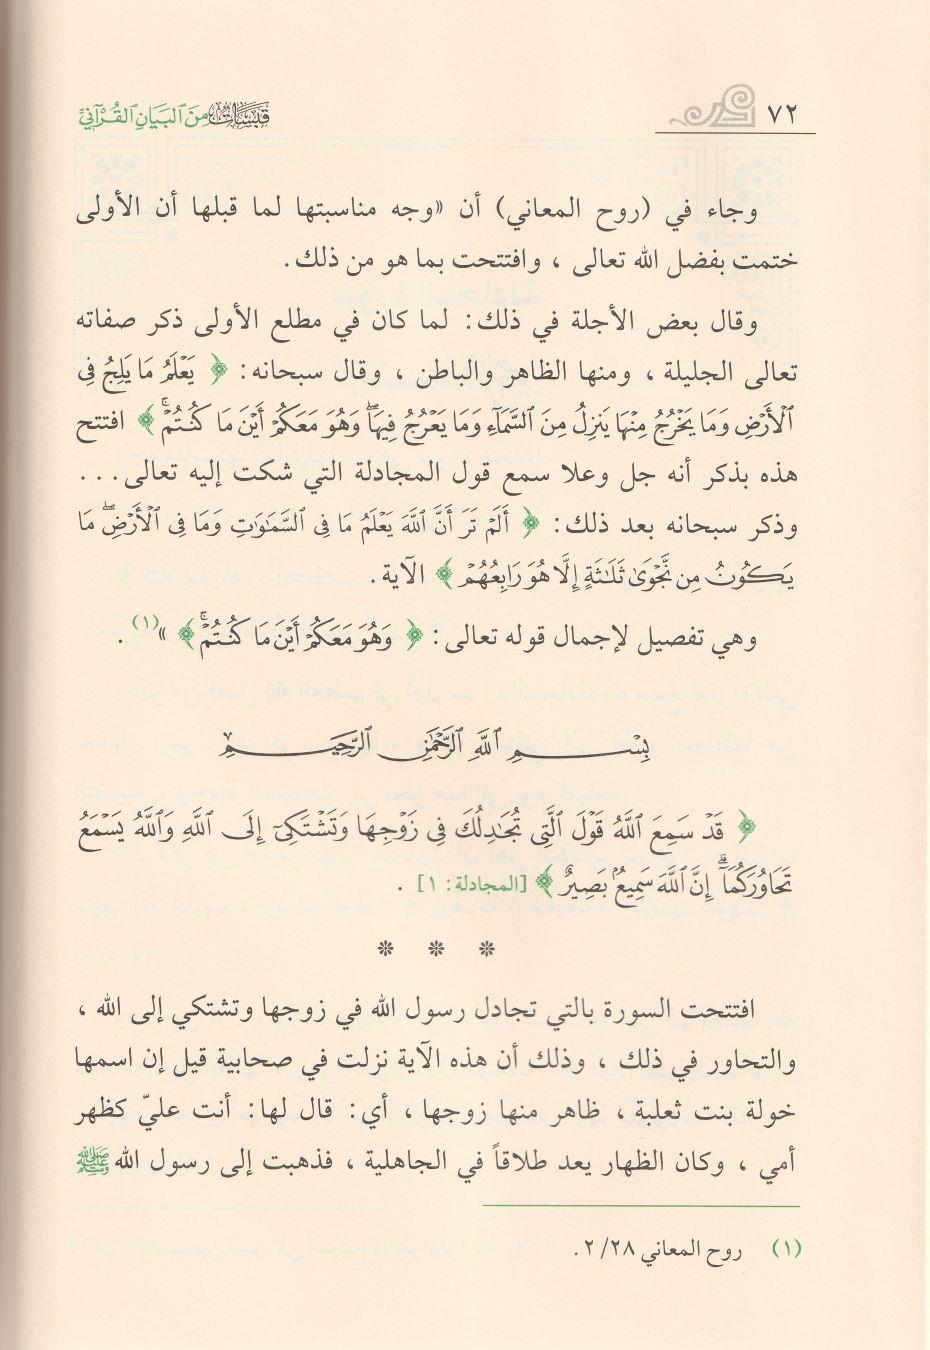 ٧٢
قبسات من البيان القرآني
وجاء في (روح المعاني) أن «وجه مناسبتها لما قبلها أن الأولى
ختمت بفضل الله تعالى ، وافتتحت بما هو من ذلك.
وقال بعض الأجلة في ذلك: لما كان في مطلع الأولى ذكر صفاته
تعالى الجليلة ، ومنها الظاهر والباطن ، وقال سبحانه: ﴿ يَعْلَمُ مَا يَلِجُ فِى
ٱلْأَرْضِ وَمَا يَخْرُجُ مِنْهَا يَنزِلُ مِنَ ٱلسَّمَآءِ وَمَا يَعْرُجُ فِيهَاۖ وَهُوَ مَعَكُمْ أَيْنَ مَا كُنتُمْۚ ﴾ افتتح
هذه بذكر أنه جل وعلا سمع قول المجادلة التي شكت إليه تعالى...
وذكر سبحانه بعد ذلك: ﴿ أَلَمْ تَرَ أَنَّ ٱللَّهَ يَعْلَمُ مَا فِى ٱلسَّمَٰوَٰتِ وَمَا فِى ٱلْأَرْضِۖ مَا
يَكُونُ مِن نَّجْوَىٰ ثَلَٰثَةٍ إِلَّا هُوَ رَابِعُهُمْ ﴾ الآية.
وهي تفصيل لإجمال قوله تعالى: ﴿ وَهُوَ مَعَكُمْ أَيْنَ مَا كُنتُمْۚ ﴾»(١) .
بِسْمِ ٱللَّهِ ٱلرَّحْمَٰنِ ٱلرَّحِيمِ
﴿ قَدْ سَمِعَ ٱللَّهُ قَوْلَ ٱلَّتِى تُجَٰدِلُكَ فِى زَوْجِهَا وَتَشْتَكِىٓ إِلَى ٱللَّهِ وَٱللَّهُ يَسْمَعُ
تَحَاوُرَكُمَآۚ إِنَّ ٱللَّهَ سَمِيعٌۢ بَصِيرٌ ﴾ [المجادلة: ١] .
* * *
افتتحت السورة بالتي تجادل رسول الله في زوجها وتشتكي إلى الله ،
والتحاور في ذلك ، وذلك أن هذه الآية نزلت في صحابية قيل إن اسمها
خولة بنت ثعلبة ، ظاهر منها زوجها ، أي: قال لها: أنت عليّ كظهر
أمي ، وكان الظهار يعد طلاقاً في الجاهلية ، فذهبت إلى رسول الله ﷺ
(١) روح المعاني ٢٨/ ٢.